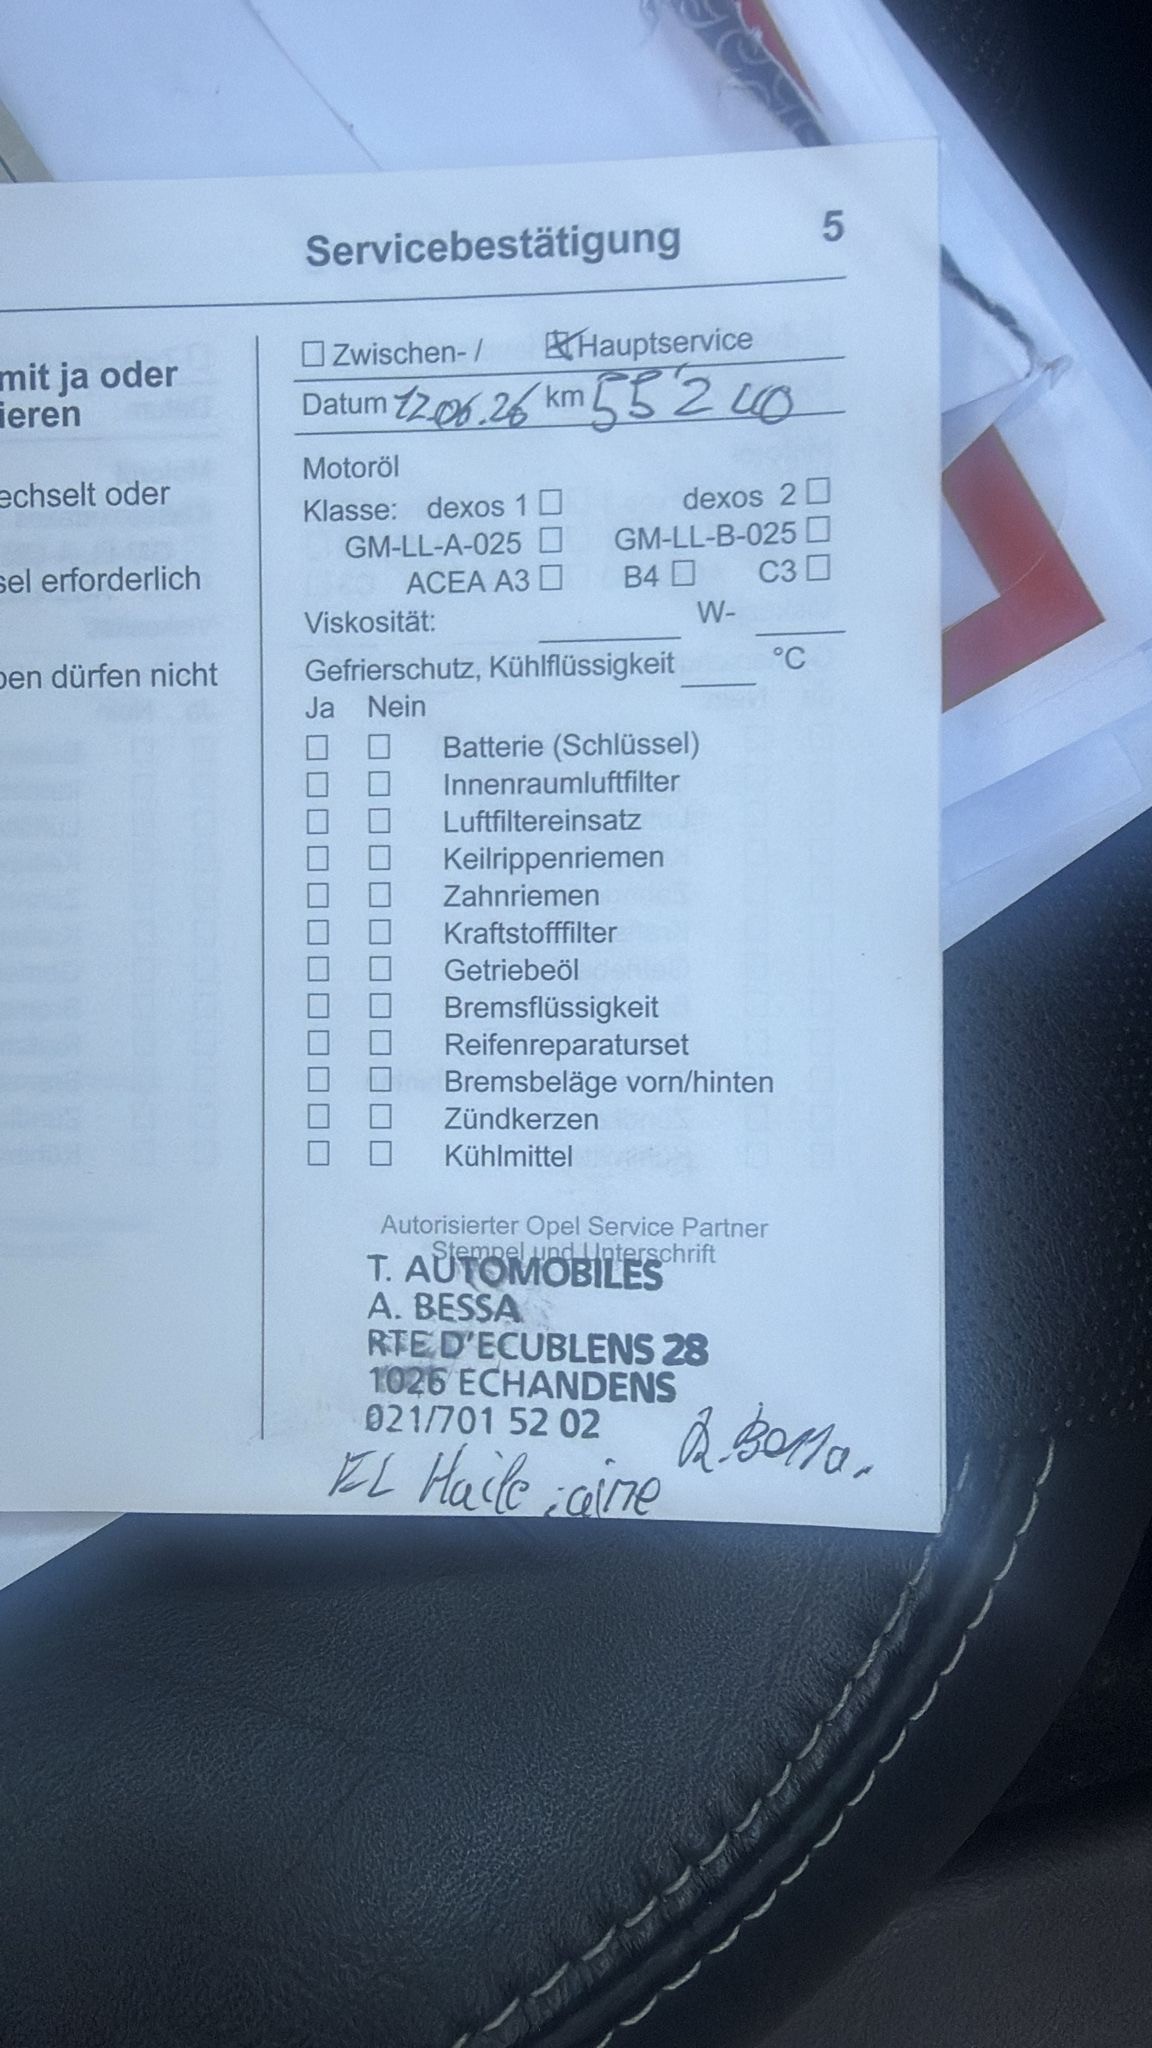 Servicebestätigung 5
mit ja oder
ieren
echselt oder
sel erforderlich
ben dürfen nicht
Zwischen- / Hauptservice
Datum 12.06.26 km 55'240
Motoröl
Klasse: dexos 1 dexos 2
GM-LL-A-025 GM-LL-B-025
ACEA A3 B4 C3
Viskosität: W-
Gefrierschutz, Kühlflüssigkeit °C
Ja Nein
Batterie (Schlüssel)
Innenraumluftfilter
Luftfiltereinsatz
Keilrippenriemen
Zahnriemen
Kraftstofffilter
Getriebeöl
Bremsflüssigkeit
Reifenreparaturset
Bremsbeläge vorn/hinten
Zündkerzen
Kühlmittel
Autorisierter Opel Service Partner
Stempel und Unterschrift
T. AUTOMOBILES
A. BESSA
RTE D'ECUBLENS 28
1026 ECHANDENS
021/701 52 02